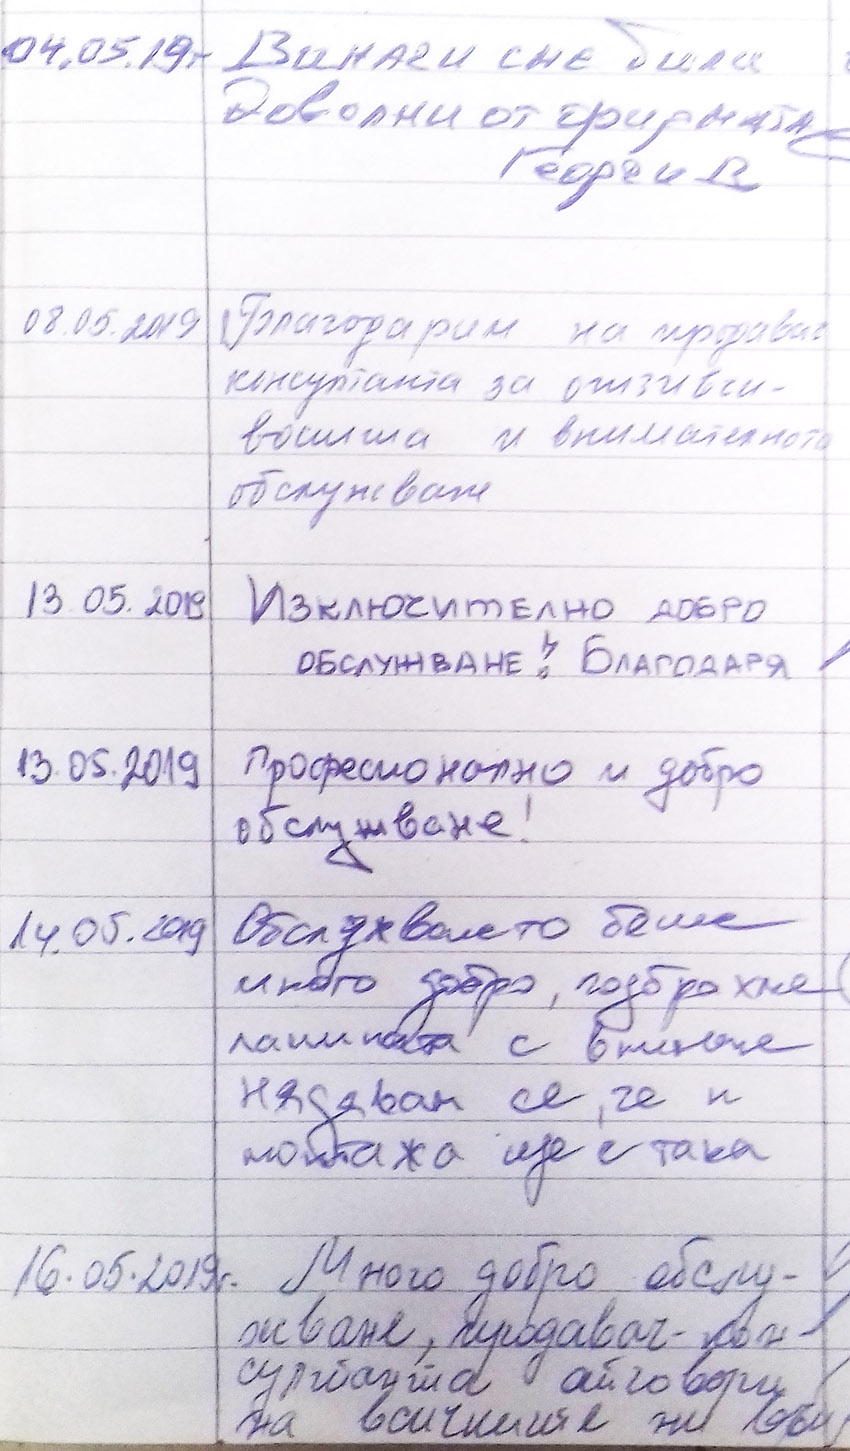 04.05.19г. Винаги сме били
доволни от фирмата
Георги В
08.05.2019 Благодарим на продавач
консултанта за отзивчи-
востта и внимателното
обслужване
13.05.2019 Изключително добро
обслужване! Благодаря
13.05.2019 Професионално и добро
обслужване!
14.05.2019 Обслужването беше
много добро, подбрахме
с внимание
Надявам се, че и
монтажа ще е така
16.05.2019г. Много добро обслу-
жване, продавач-кон-
султанта отговори
на всичките ни